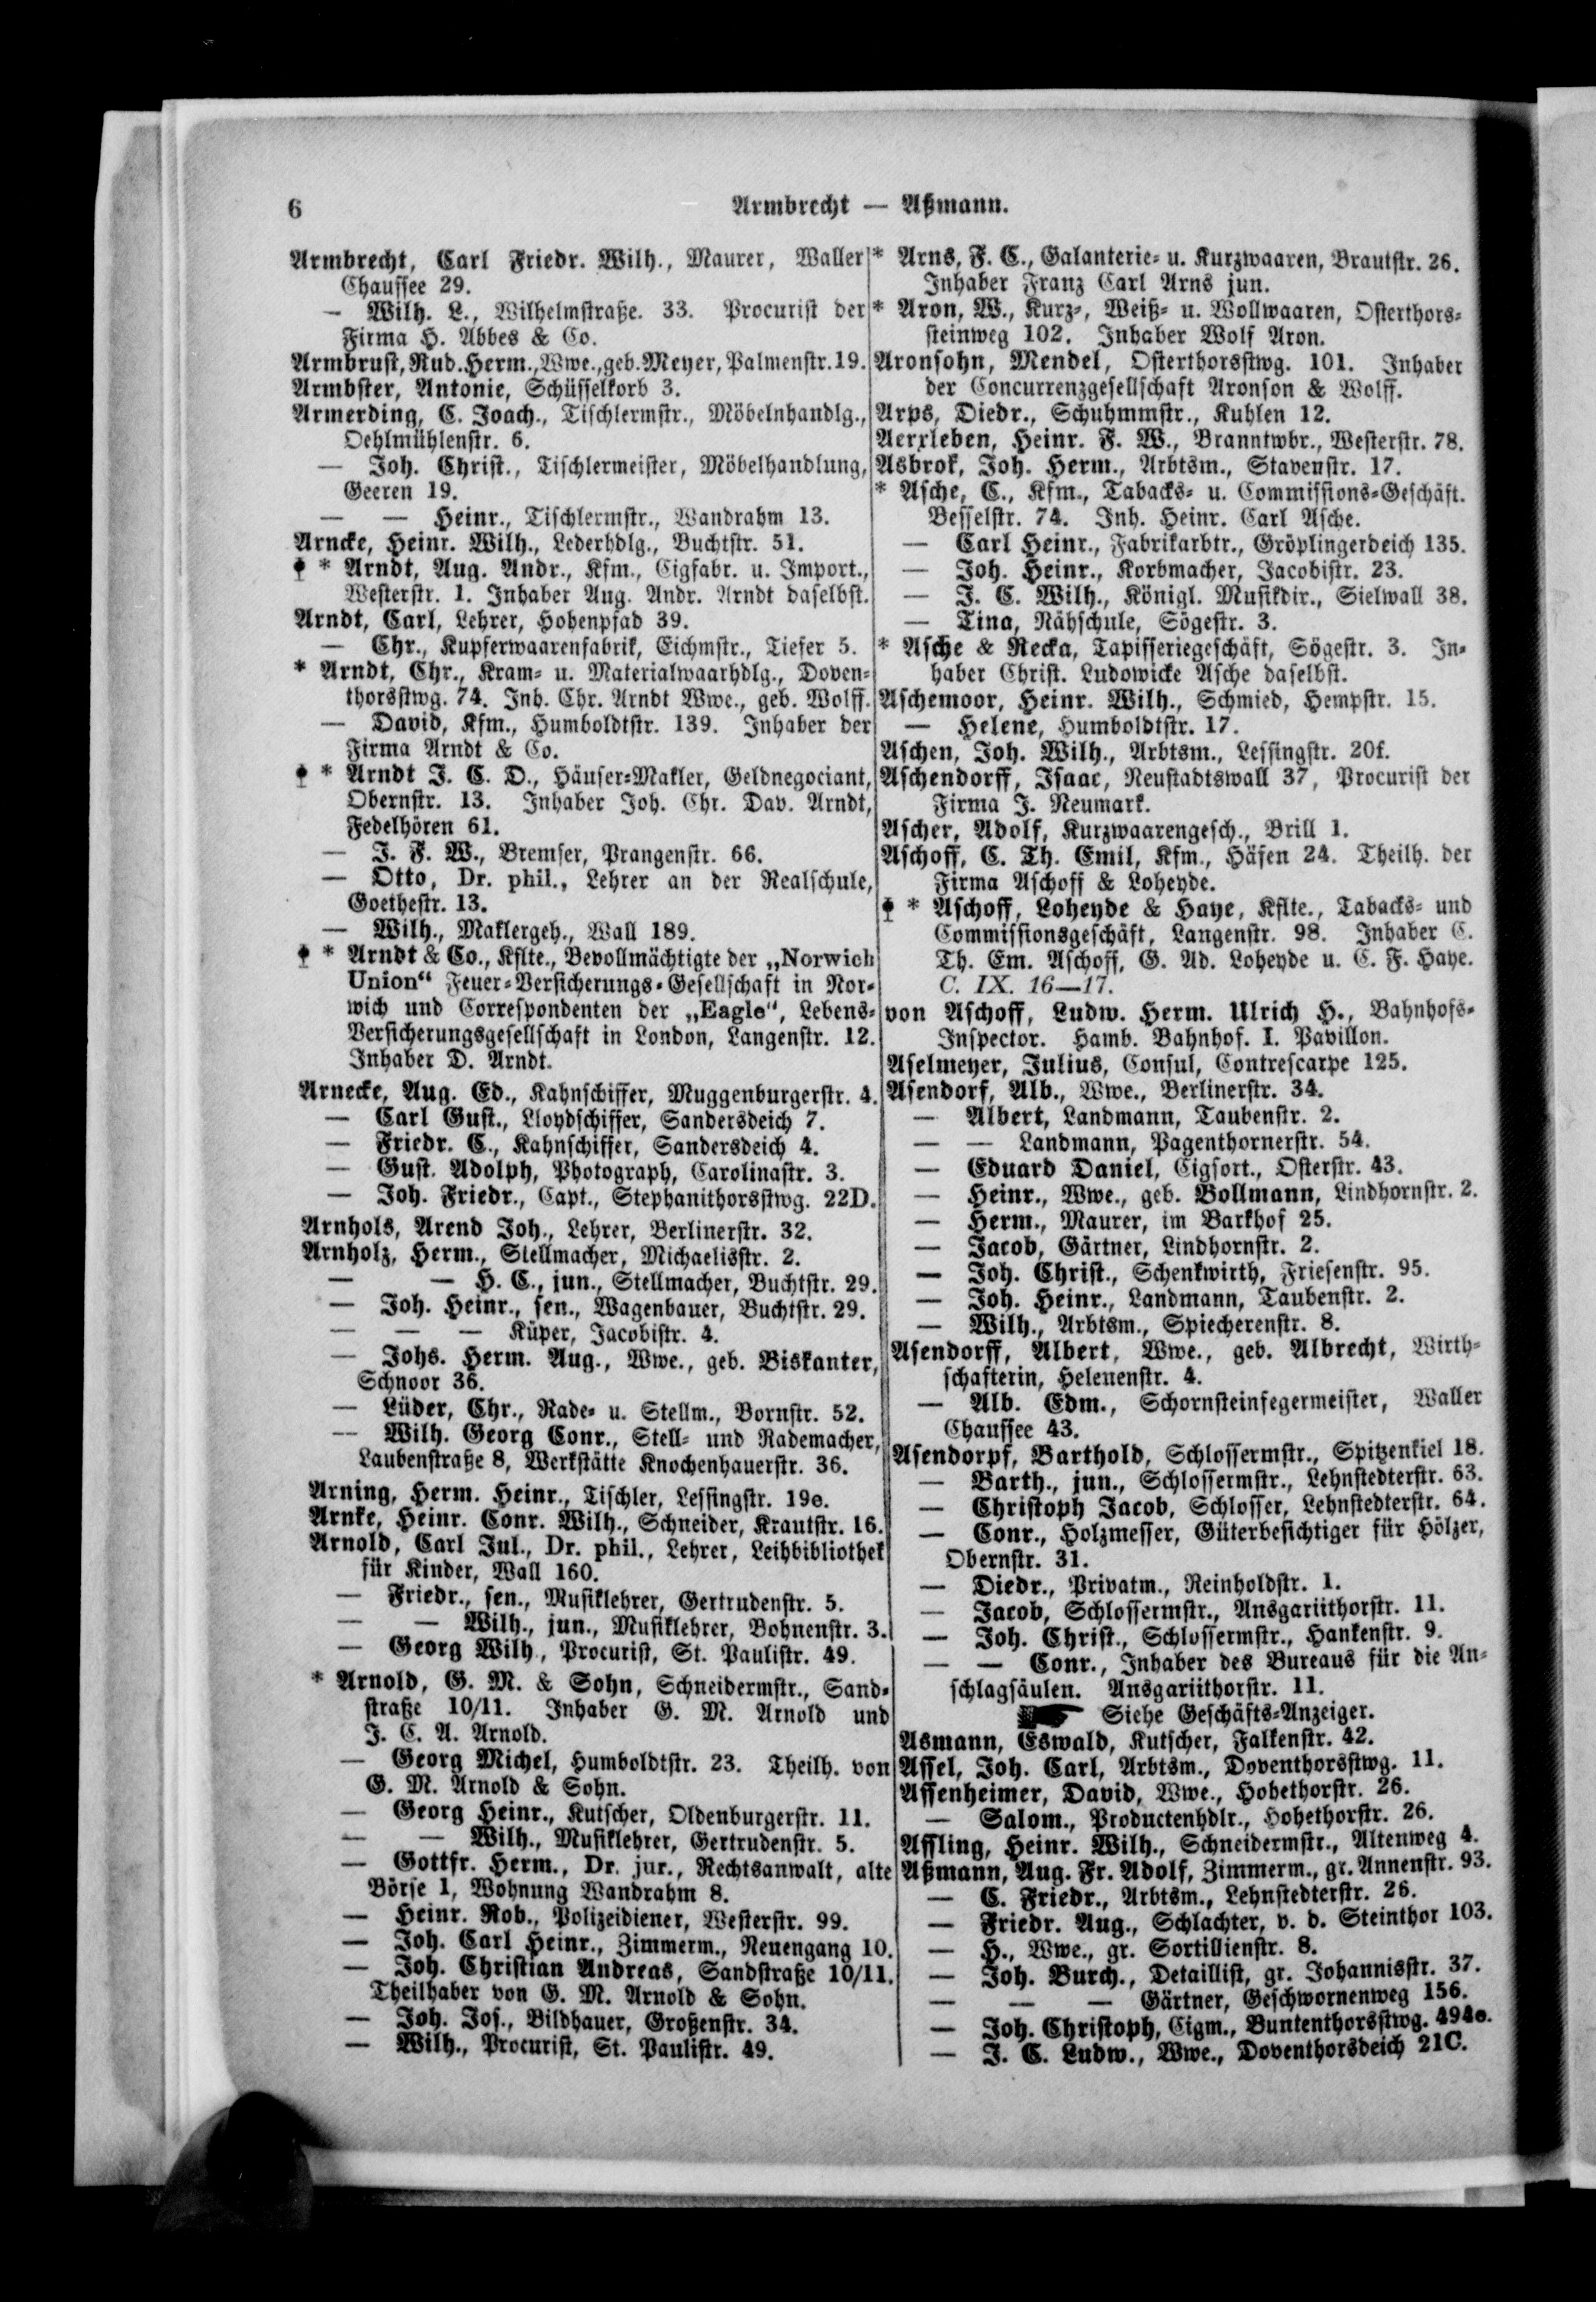 6
Armbrecht — Aßmann.
Armbrecht, Carl Friedr. Wilh., Maurer, Waller
Chaussee 29.
— Wilh. L., Wilhelmstraße. 33. Procurist der
Firma H. Abbes & Co.
Armbrust, Rud. Herm., Wwe., geb. Meyer, Palmenstr. 19.
Armbster, Antonie, Schüsselkorb 3.
Armerding, C. Joach., Tischlermstr., Möbelnhandlg.,
Oehlmühlenstr. 6.
— Joh. Christ., Tischlermeister, Möbelhandlung,
Geeren 19.
— — Heinr., Tischlermstr., Wandrahm 13.
Arncke, Heinr. Wilh., Lederhdlg., Buchtstr. 51.
* Arndt, Aug. Andr., Kfm., Cigfabr. u. Import.,
Westerstr. 1. Inhaber Aug. Andr. Arndt daselbst.
Arndt, Carl, Lehrer, Hohenpfad 39.
— Chr., Kupferwaarenfabrik, Eichmstr., Tiefer 5.
* Arndt, Chr., Kram- u. Materialwaarhdlg., Doven-
thorsstwg. 74. Inh. Chr. Arndt Wwe., geb. Wolff.
— David, Kfm., Humboldtstr. 139. Inhaber der
Firma Arndt & Co.
* Arndt J. C. D., Häuser-Makler, Geldnegociant,
Obernstr. 13. Inhaber Joh. Chr. Dav. Arndt,
Fedelhören 61.
— J. F. W., Bremser, Prangenstr. 66.
— Otto, Dr. phil., Lehrer an der Realschule,
Goethestr. 13.
— Wilh., Maklergeh., Wall 189.
* Arndt & Co., Kflte., Bevollmächtigte der „Norwich
Union“ Feuer-Versicherungs-Gesellschaft in Nor-
wich und Correspondenten der „Eagle“, Lebens-
Versicherungsgesellschaft in London, Langenstr. 12.
Inhaber D. Arndt.
Arnecke, Aug. Ed., Kahnschiffer, Muggenburgerstr. 4.
— Carl Gust., Lloydschiffer, Sandersdeich 7.
— Friedr. C., Kahnschiffer, Sandersdeich 4.
— Gust. Adolph, Photograph, Carolinastr. 3.
— Joh. Friedr., Capt., Stephanithorsstwg. 22D.
Arnhols, Arend Joh., Lehrer, Berlinerstr. 32.
Arnholz, Herm., Stellmacher, Michaelisstr. 2.
— — H. C., jun., Stellmacher, Buchtstr. 29.
— Joh. Heinr., sen., Wagenbauer, Buchtstr. 29.
— — — Küper, Jacobistr. 4.
— Johs. Herm. Aug., Wwe., geb. Biskanter,
Schnoor 36.
— Lüder, Chr., Rade- u. Stellm., Bornstr. 52.
— Wilh. Georg Conr., Stell- und Rademacher,
Laubenstraße 8, Werkstätte Knochenhauerstr. 36.
Arning, Herm. Heinr., Tischler, Lessingstr. 19e.
Arnke, Heinr. Conr. Wilh., Schneider, Krautstr. 16.
Arnold, Carl Jul., Dr. phil., Lehrer, Leihbibliothek
für Kinder, Wall 160.
— Friedr., sen., Musiklehrer, Gertrudenstr. 5.
— — Wilh., jun., Musiklehrer, Bohnenstr. 3.
— Georg Wilh., Procurist, St. Paulistr. 49.
* Arnold, G. M. & Sohn, Schneidermstr., Sand-
straße 10/11. Inhaber G. M. Arnold und
J. C. A. Arnold.
— Georg Michel, Humboldtstr. 23. Theilh. von
G. M. Arnold & Sohn.
— Georg Heinr., Kutscher, Oldenburgerstr. 11.
— — Wilh., Musiklehrer, Gertrudenstr. 5.
— Gottfr. Herm., Dr. jur., Rechtsanwalt, alte
Börse 1, Wohnung Wandrahm 8.
— Heinr. Rob., Polizeidiener, Westerstr. 99.
— Joh. Carl Heinr., Zimmerm., Neuengang 10.
— Joh. Christian Andreas, Sandstraße 10/11.
Theilhaber von G. M. Arnold & Sohn.
— Joh. Jos., Bildhauer, Großenstr. 34.
— Wilh., Procurist, St. Paulistr. 49.
* Arns, F. C., Galanterie- u. Kurzwaaren, Brautstr. 26.
Inhaber Franz Carl Arns jun.
* Aron, W., Kurz-, Weiß- u. Wollwaaren, Osterthors-
steinweg 102. Inhaber Wolf Aron.
Aronsohn, Mendel, Osterthorsstwg. 101. Inhaber
der Concurrenzgesellschaft Aronson & Wolff.
Arps, Diedr., Schuhmmstr., Kuhlen 12.
Aerxleben, Heinr. F. W., Branntwbr., Westerstr. 78.
Asbrok, Joh. Herm., Arbtsm., Stavenstr. 17.
* Asche, C., Kfm., Tabacks- u. Commissions-Geschäft.
Besselstr. 74. Inh. Heinr. Carl Asche.
— Carl Heinr., Fabrikarbtr., Gröplingerdeich 135.
— Joh. Heinr., Korbmacher, Jacobistr. 23.
— J. C. Wilh., Königl. Musikdir., Sielwall 38.
— Tina, Nähschule, Sögestr. 3.
* Asche & Recka, Tapisseriegeschäft, Sögestr. 3. In-
haber Christ. Ludowicke Asche daselbst.
Aschemoor, Heinr. Wilh., Schmied, Hempstr. 15.
— Helene, Humboldtstr. 17.
Aschen, Joh. Wilh., Arbtsm., Lessingstr. 20f.
Aschendorff, Isaac, Neustadtswall 37, Procurist der
Firma J. Neumark.
Ascher, Adolf, Kurzwaarengesch., Brill 1.
Aschoff, C. Th. Emil, Kfm., Häfen 24. Theilh. der
Firma Aschoff & Loheyde.
* Aschoff, Loheyde & Haye, Kflte., Tabacks- und
Commissionsgeschäft, Langenstr. 98. Inhaber C.
Th. Em. Aschoff, G. Ad. Loheyde u. C. F. Haye.
C. IX. 16—17.
von Aschoff, Ludw. Herm. Ulrich H., Bahnhofs-
Inspector. Hamb. Bahnhof. I. Pavillon.
Aselmeyer, Julius, Consul, Contrescarpe 125.
Asendorf, Alb., Wwe., Berlinerstr. 34.
— Albert, Landmann, Taubenstr. 2.
— — Landmann, Pagenthornerstr. 54.
— Eduard Daniel, Cigsort., Osterstr. 43.
— Heinr., Wwe., geb. Bollmann, Lindhornstr. 2.
— Herm., Maurer, im Barkhof 25.
— Jacob, Gärtner, Lindhornstr. 2.
— Joh. Christ., Schenkwirth, Friesenstr. 95.
— Joh. Heinr., Landmann, Taubenstr. 2.
— Wilh., Arbtsm., Spiecherenstr. 8.
Asendorff, Albert, Wwe., geb. Albrecht, Wirth-
schafterin, Helenenstr. 4.
— Alb. Edm., Schornsteinfegermeister, Waller
Chaussee 43.
Asendorpf, Barthold, Schlossermstr., Spitzenkiel 18.
— Barth., jun., Schlossermstr., Lehnstedterstr. 63.
— Christoph Jacob, Schlosser, Lehnstedterstr. 64.
— Conr., Holzmesser, Güterbesichtiger für Hölzer,
Obernstr. 31.
— Diedr., Privatm., Reinholdstr. 1.
— Jacob, Schlossermstr., Ansgariithorstr. 11.
— Joh. Christ., Schlossermstr., Hankenstr. 9.
— — Conr., Inhaber des Bureaus für die An-
schlagsäulen. Ansgariithorstr. 11.
Siehe Geschäfts-Anzeiger.
Asmann, Eswald, Kutscher, Falkenstr. 42.
Assel, Joh. Carl, Arbtsm., Doventhorsstwg. 11.
Assenheimer, David, Wwe., Hohethorstr. 26.
— Salom., Productenhdlr., Hohethorstr. 26.
Assling, Heinr. Wilh., Schneidermstr., Altenweg 4.
Aßmann, Aug. Fr. Adolf, Zimmerm., gr. Annenstr. 93.
— C. Friedr., Arbtsm., Lehnstedterstr. 26.
— Friedr. Aug., Schlachter, v. d. Steinthor 103.
— H., Wwe., gr. Sortillienstr. 8.
— Joh. Burch., Detaillist, gr. Johannisstr. 37.
— — — Gärtner, Geschwornenweg 156.
— Joh. Christoph, Cigm., Buntenthorsstwg. 494e.
— J. C. Ludw., Wwe., Doventhorsdeich 21C.